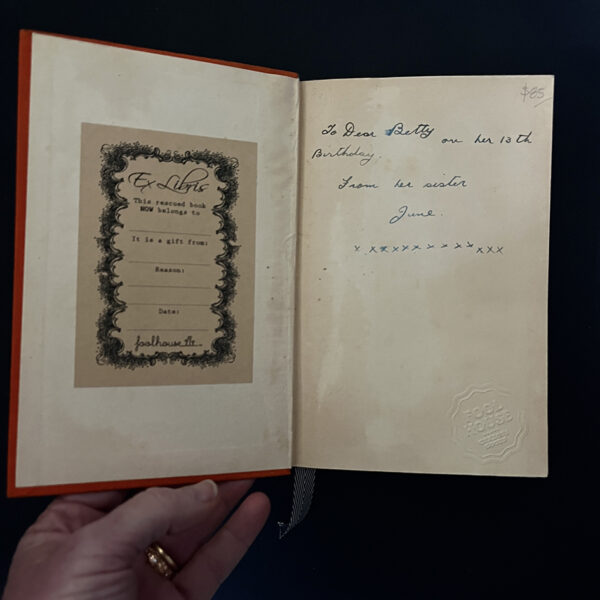 Ex Libris
This rescued book
NOW belongs to
It is a gift from:
Reason:
Date:
foolhouse
$85
To Dear Betty on her 13th
Birthday.
From her sister
June.
x x x x x x x x x x x x x
FOOL
HOUSE